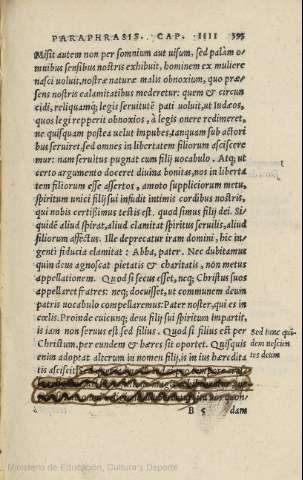 PARAPHRASIS. CAP. IIII 395
Misit autem non per somnium aut uisum, sed palàm o-
mnibus sensibus nostris exhibuit, hominem ex muliere
nasci uoluit, nostræ naturæ malis obnoxium, quo præ-
sens nostris calamitatibus mederetur: quem & circun
cidi, reliquamq; legis seruitutẽ pati uoluit, ut Iudæos,
quos legi repperit obnoxios, à legis onere redimeret,
ne quisquam postea uelut impubes, tanquam sub actori
bus seruiret, sed omnes in libertatem filiorum ascisere
mur: nam seruitus pugnat cum filij uocabulo. Atq; ut
certo argumento doceret diuina bonitas, nos in liberta
tem filiorum esse assertos, amoto suppliciorum metu,
spiritum unici filij sui infudit intimis cordibus nostris,
qui nobis certißimus testis est. quod simus filij dei. Si-
quidẽ aliud spirat, aliud clamitat spiritus seruilis, aliud
filiorum affectus. Ille deprecatur iram domini, hic in-
genti fiducia clamitat: Abba, pater. Nec dubitamus
quin deus agnoscat pietatis & charitatis, non metus
appellationem. Quod si secus esset, neq; Christus suos
appellaret fratres: neq; docuisset, ut communem deum
patris uocabulo compellaremus: Pater noster, qui es in
cœlis. Proinde cuicunq; deus filij sui spiritum impartit,
is iam non seruus est sed filius. Quod si filius est per
Christum, per eundem & hæres sit oportet. Quisquis
enim adoptat alterum in nomen filij, is in ius hæredita
tis asciscit
Sed tunc qui-
dem nescien
tes deum
uos quon-
B 5 dam
Ministerio de Educación, Cultura y Deporte